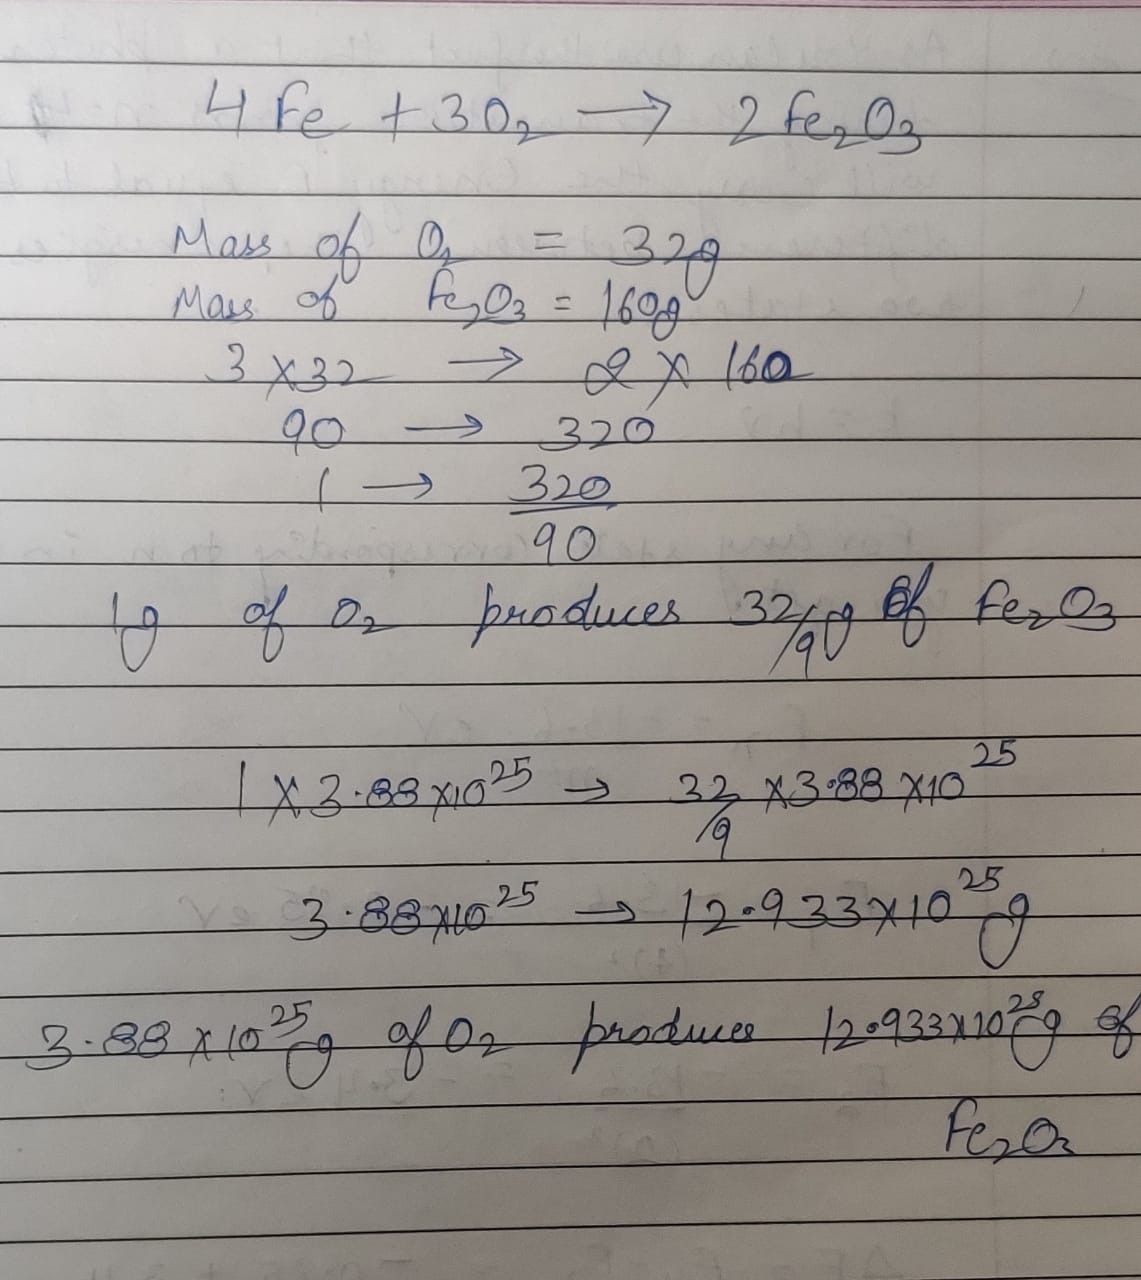 4 Fe + 3 O₂ → 2 Fe₂O₃
Mass of O₂ = 32g
Mass of Fe₂O₃ = 160g
3 × 32 → 2 × 160
90 → 320
1 → 320/90
1g of O₂ produces 32/9 g of Fe₂O₃
1 × 3.88 × 10²⁵ → 32/9 × 3.88 × 10²⁵
3.88 × 10²⁵ → 12.933 × 10²⁵ g
3.88 × 10²⁵ g of O₂ produces 12.933 × 10²⁵ g of
Fe₂O₃